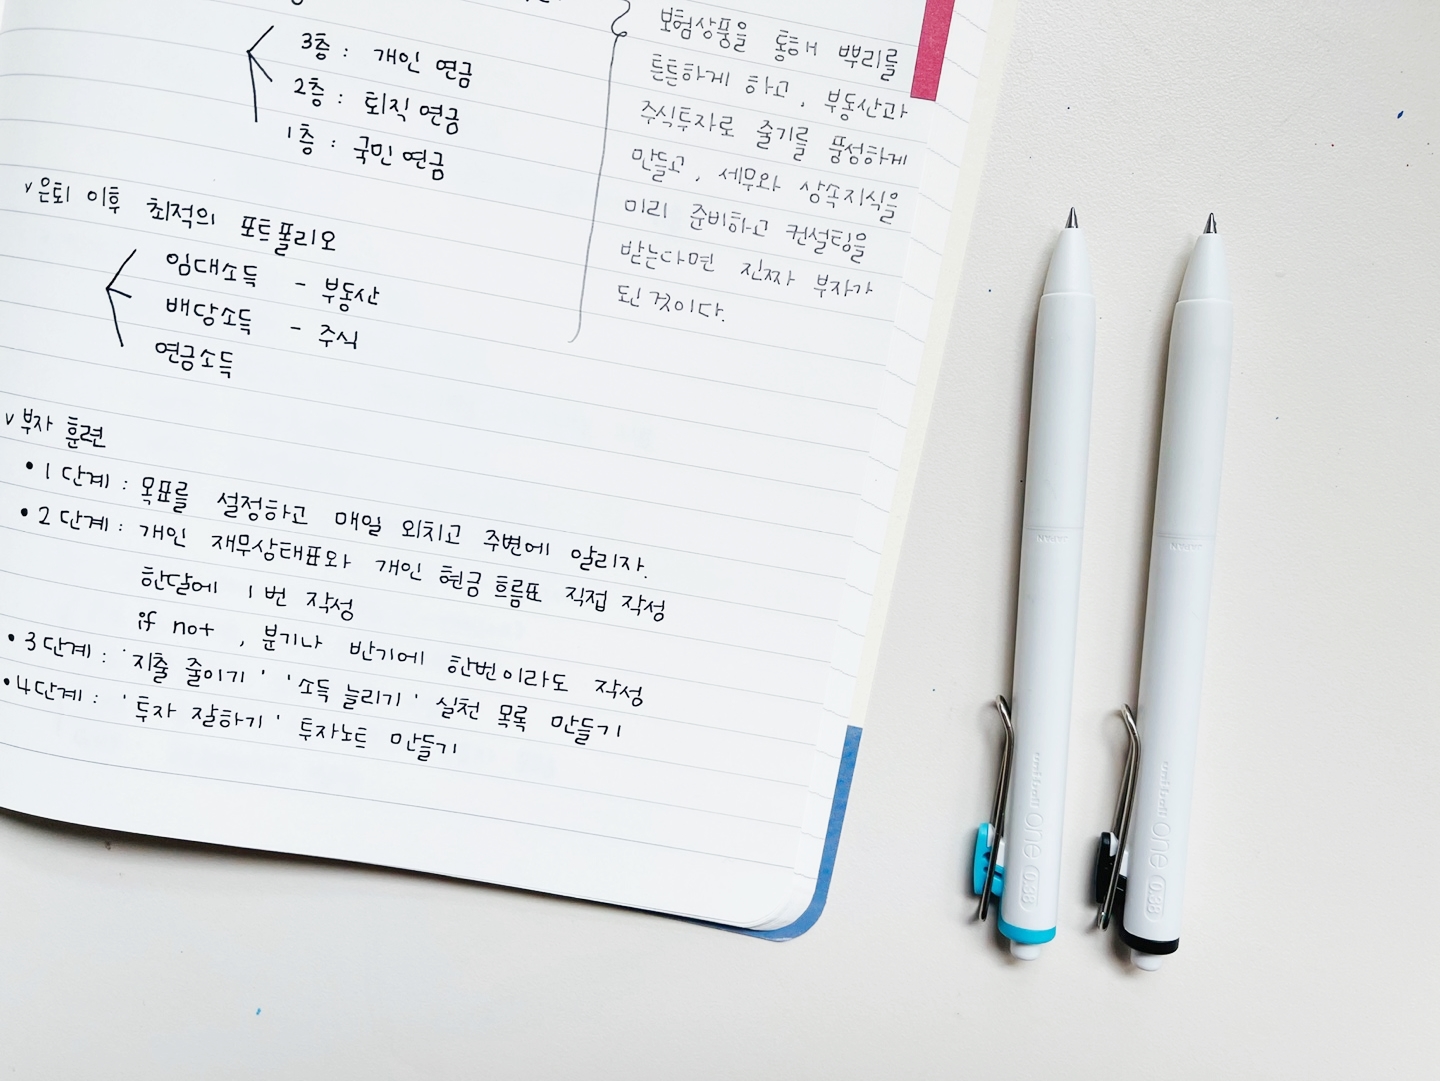 3층 : 개인 연금
2층 : 퇴직 연금
1층 : 국민 연금
v 은퇴 이후 최적의 포트폴리오
임대소득 - 부동산
배당소득 - 주식
연금소득
v 부자 훈련
• 1단계 : 목표를 설정하고 매일 외치고 주변에 알리자.
• 2단계 : 개인 재무상태표와 개인 현금 흐름표 직접 작성
한달에 1번 작성
if not , 분기나 반기에 한번이라도 작성
• 3단계 : '지출 줄이기' '소득 늘리기' 실천 목록 만들기
• 4단계 : '투자 잘하기' 투자노트 만들기
보험상품을 통해 뿌리를
튼튼하게 하고, 부동산과
주식투자로 줄기를 풍성하게
만들고, 세무와 상속지식을
미리 준비하고 컨설팅을
받는다면 진짜 부자가
된 것이다.
JAPAN
uni-ball One 0.38
JAPAN
uni-ball One 0.38